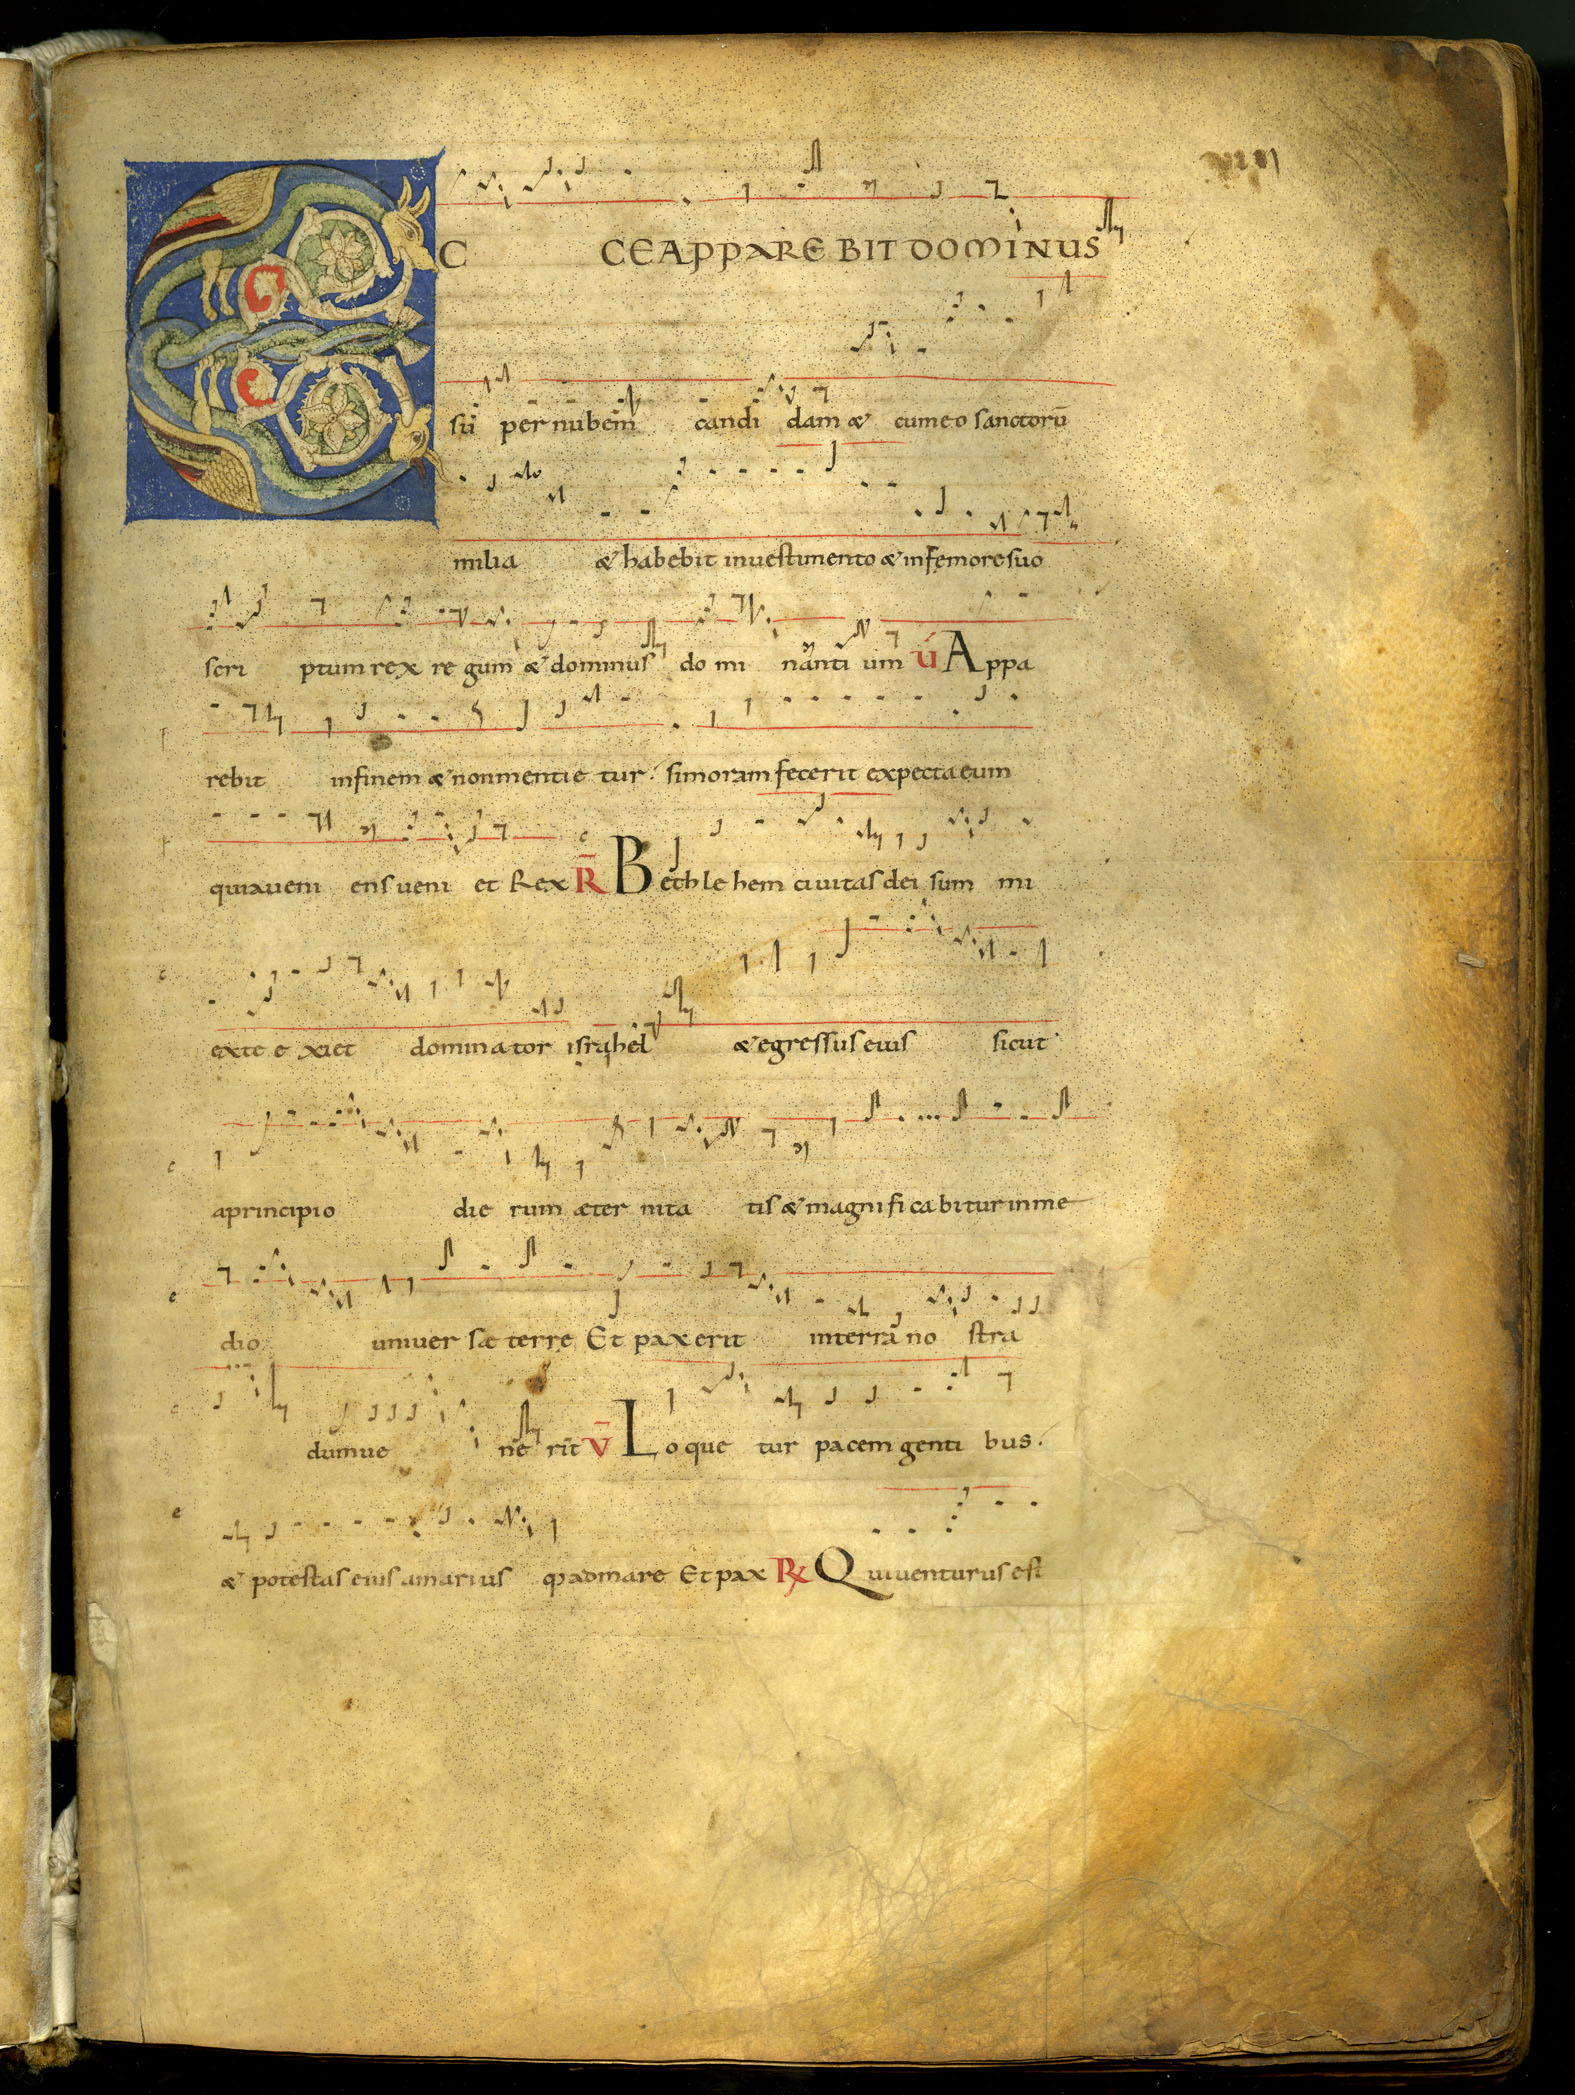 E C CE APPARE BIT DOMINUS
sū per nubem candi dam & cum eo sanctorū
milia & habebit in uestimento & in femore suo
scri ptum rex re gum & dominus do mi nanti um V̄ Appa
rebit in finem & non mentie tur. si moram fecerit expecta eum
quia ueni ens ueni et Rex R̄ Beth le hem ciuitas dei sum mi
ex te e xiet domina tor israhel & egressus eius sicut
a principio die rum æter nita tis & magnificabitur in me
dio uniuer sæ terre Et pax erit in terra no stra
dum ue ne rit V̄ Loque tur pacem genti bus.
& potestas eius a mari us ad mare Et pax R̄ Qui uenturus est